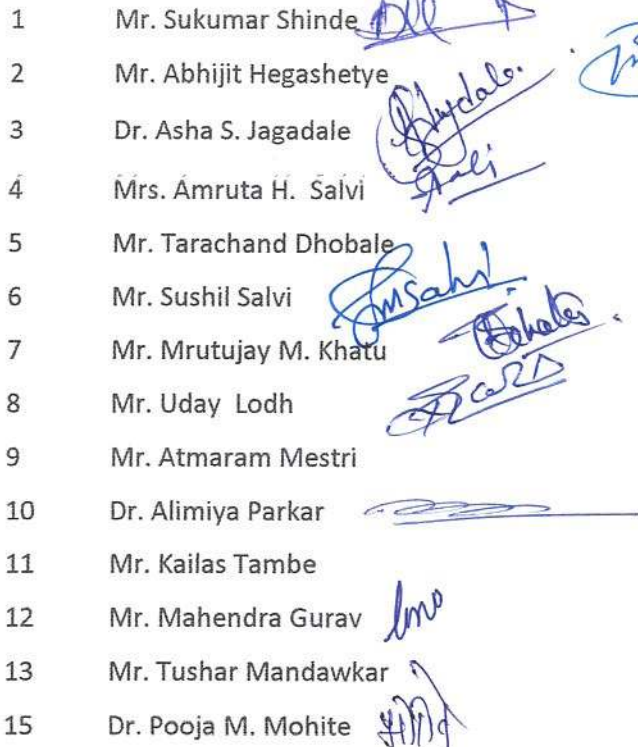 1 Mr. Sukumar Shinde
2 Mr. Abhijit Hegashetye
3 Dr. Asha S. Jagadale
4 Mrs. Amruta H. Salvi
5 Mr. Tarachand Dhobale
6 Mr. Sushil Salvi
7 Mr. Mrutujay M. Khatu
8 Mr. Uday Lodh
9 Mr. Atmaram Mestri
10 Dr. Alimiya Parkar
11 Mr. Kailas Tambe
12 Mr. Mahendra Gurav
13 Mr. Tushar Mandawkar
15 Dr. Pooja M. Mohite